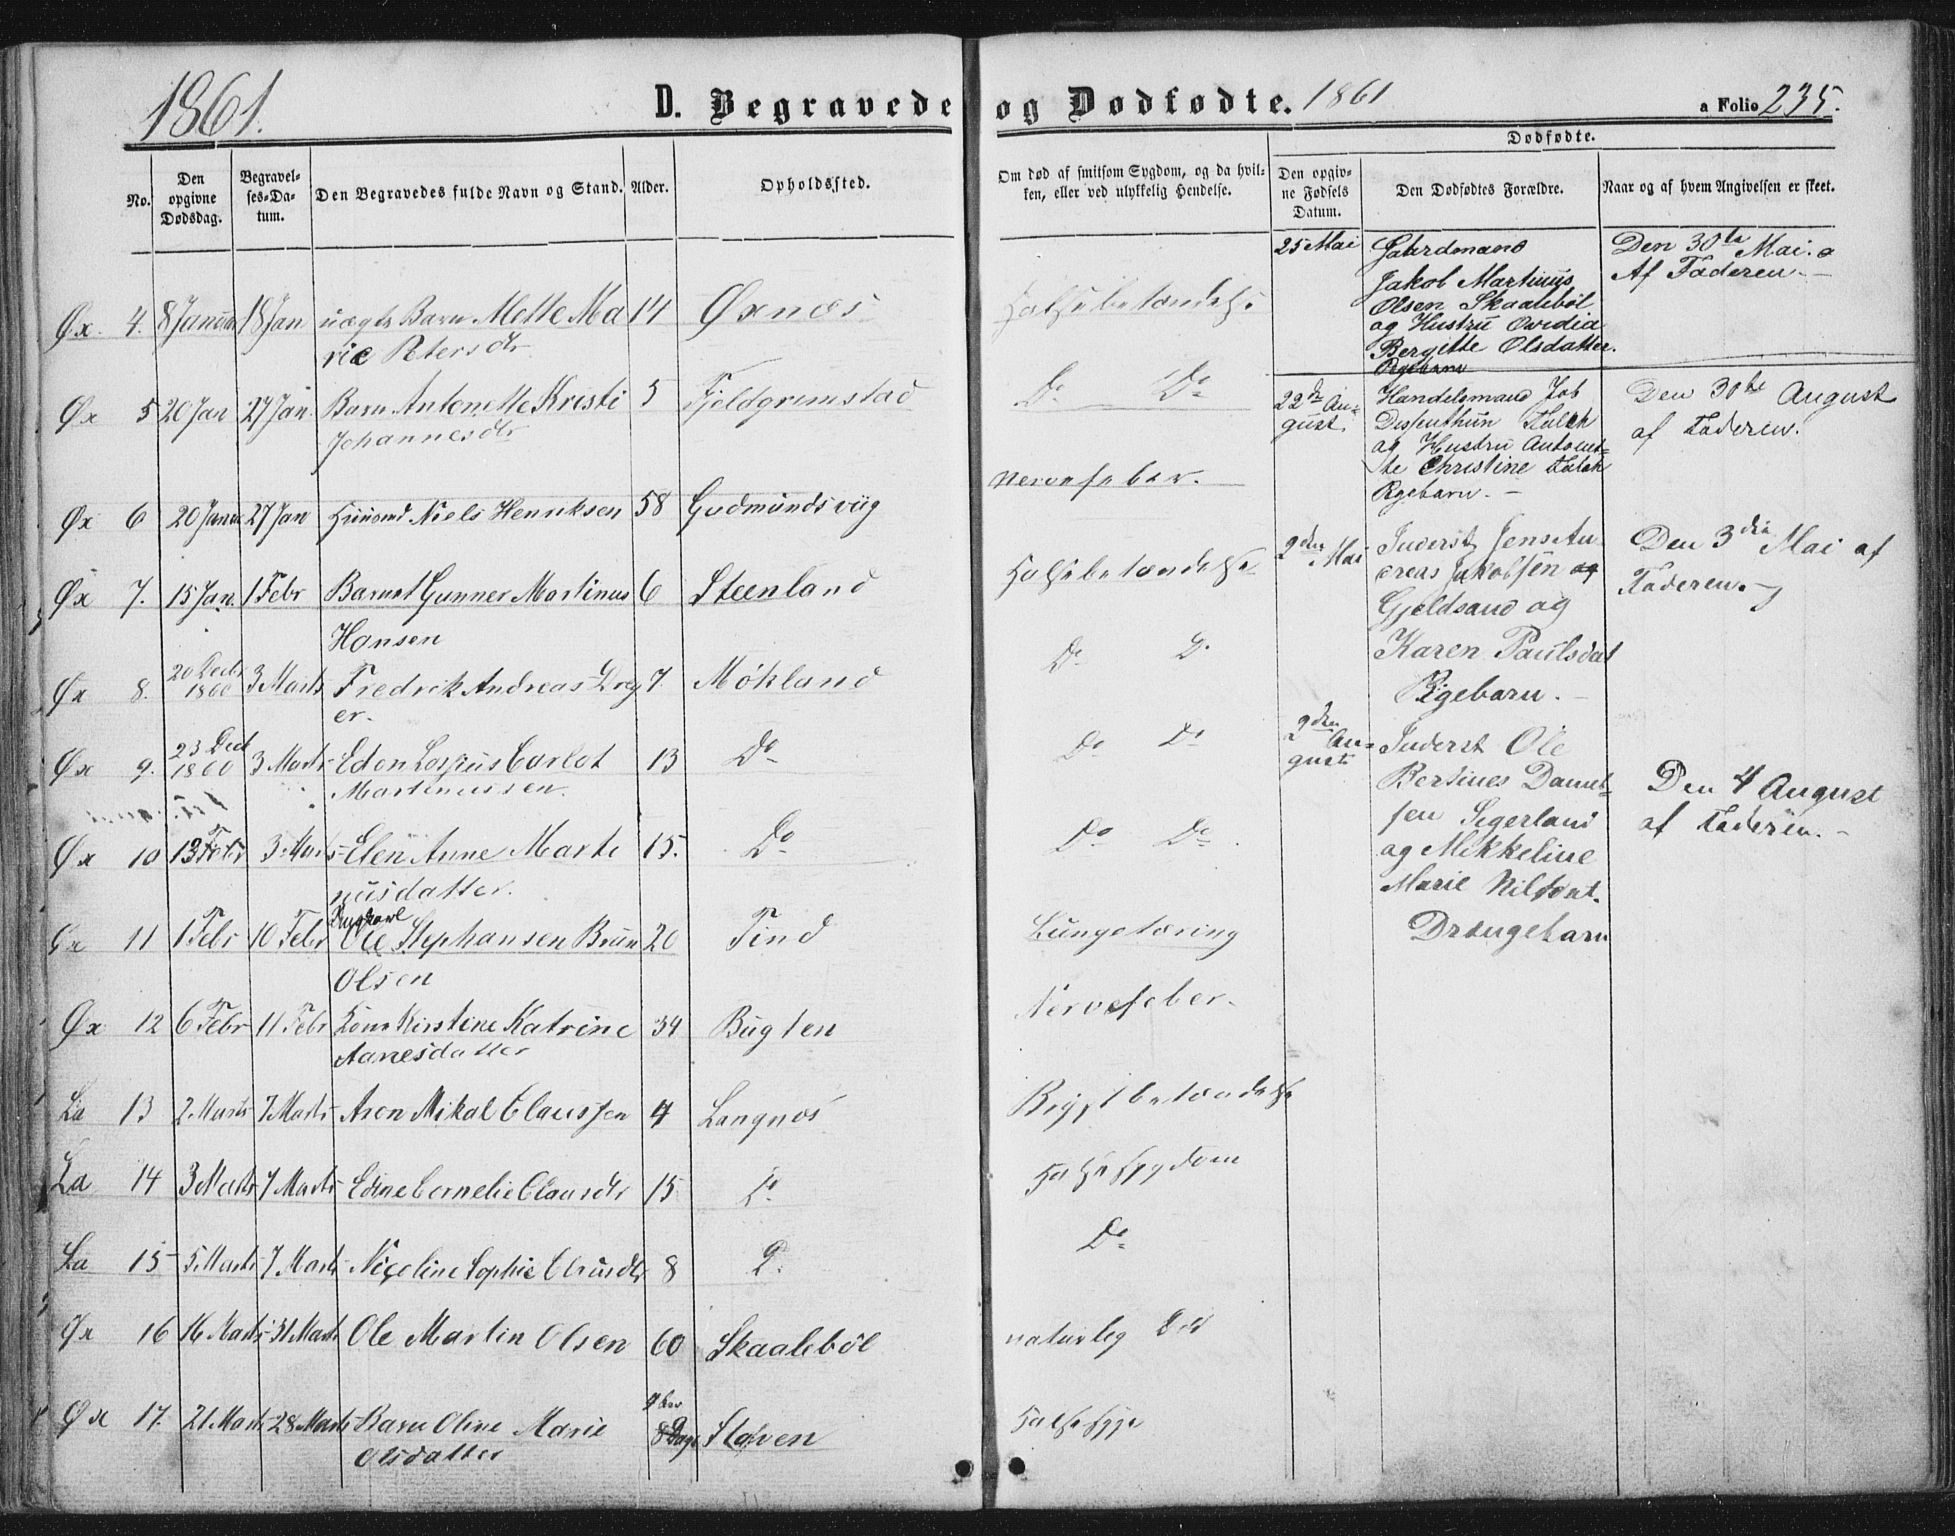 1861.
D. Begravede og Dødfødte. 1861
a Folio 235.
No.
Den opgivne Dødsdag.
Begravelses-Datum.
Den Begravedes fulde Navn og Stand.
Alder.
Opholdssted.
Om død af smitsom Sygdom, og da hvilken, eller ved ulykkelig Hendelse.
Dødfødte.
Den opgivne Fødsels Datum.
Den Dødfødtes Forældre.
Naar og af hvem Angivelsen er skeet.
Øx. 4. 8 Januar 18 Jan uægte Barn Mette Ma 14 Øxnæs Halsebetændelse
rie Petersdr
Øx 5 20 Jan 27 Jan. Barn Antonette Kristi 5 Fjeldgrimstad Do Do
Johannesdr
Øx 6 20 Januar 27 Jan Niels Henriksen 58 Gudmundsviig Nervefeber.
Øx 7. 15 Jan. 1 Febr Barnet Gunner Martinus 6 Steenland Halsebetændelse
Hansen
Øx 8. 20 Decbr 1860 3 Marts Fredrik Andreas Drey 7 Mökland Do Do
er.
Øx 9. 23 Dec 1860 3 Marts Edon Carlot 13 Do Do Do
Martinussen.
Øx 10 13 Febr 3 Marts Elen Anne Marti 15. Do Do Do
nusdatter.
Øx 11 1 Febr 10 Febr Ungkarl Ole Stephansen Brun 20 Tind Lungetæring
Olsen
Øx 12 6 Febr 11 Febr Kone Kirstine Katrine 34 Bugten Nervefeber.
Aanesdatter
La 13 2 Marts 7 Marts Aron Mikal Claussen 4 Langnæs Brystbetændelse
La 14 3 Marts 7 Marts Edine Cornelie Clausdr 15 Do Halsesygdom
La 15 5 Marts 7 Marts Nicoline Sophie Clausdr 8 Do Do
Øx 16 16 Marts 31 Marts Ole Martin Olsen 60 Skaalebøl naturlig Død
Øx 17. 21 Marts 28 Marts Barn Oline Marie 8 Dage Støven Halsesyge
Olsdatter
25 Mai
Gaardmand
Jakob Martinus
Olsen Skaalebøl
og Hustru Ovedia
Bergitte Olsdatter.
Pigebarn
Den 30te Mai.
Af Faderen.
22de August.
Handelsmand Job
Falck
og Hustru Antonet-
te Christine Falck
Pigebarn.
Den 30te August
af Faderen.
2den Mai
Inderst Jens An
dreas Jakobsen og
Gjeldsand og
Karen Paulsdat
Pigebarn.
Den 3die Mai af
Faderen.
2den August
Inderst Ole
Bertines Daniel-
sen Segerland
og Mikkeline
Marie Nilsdat.
Drængebarn
Den 4 August
af Faderen.